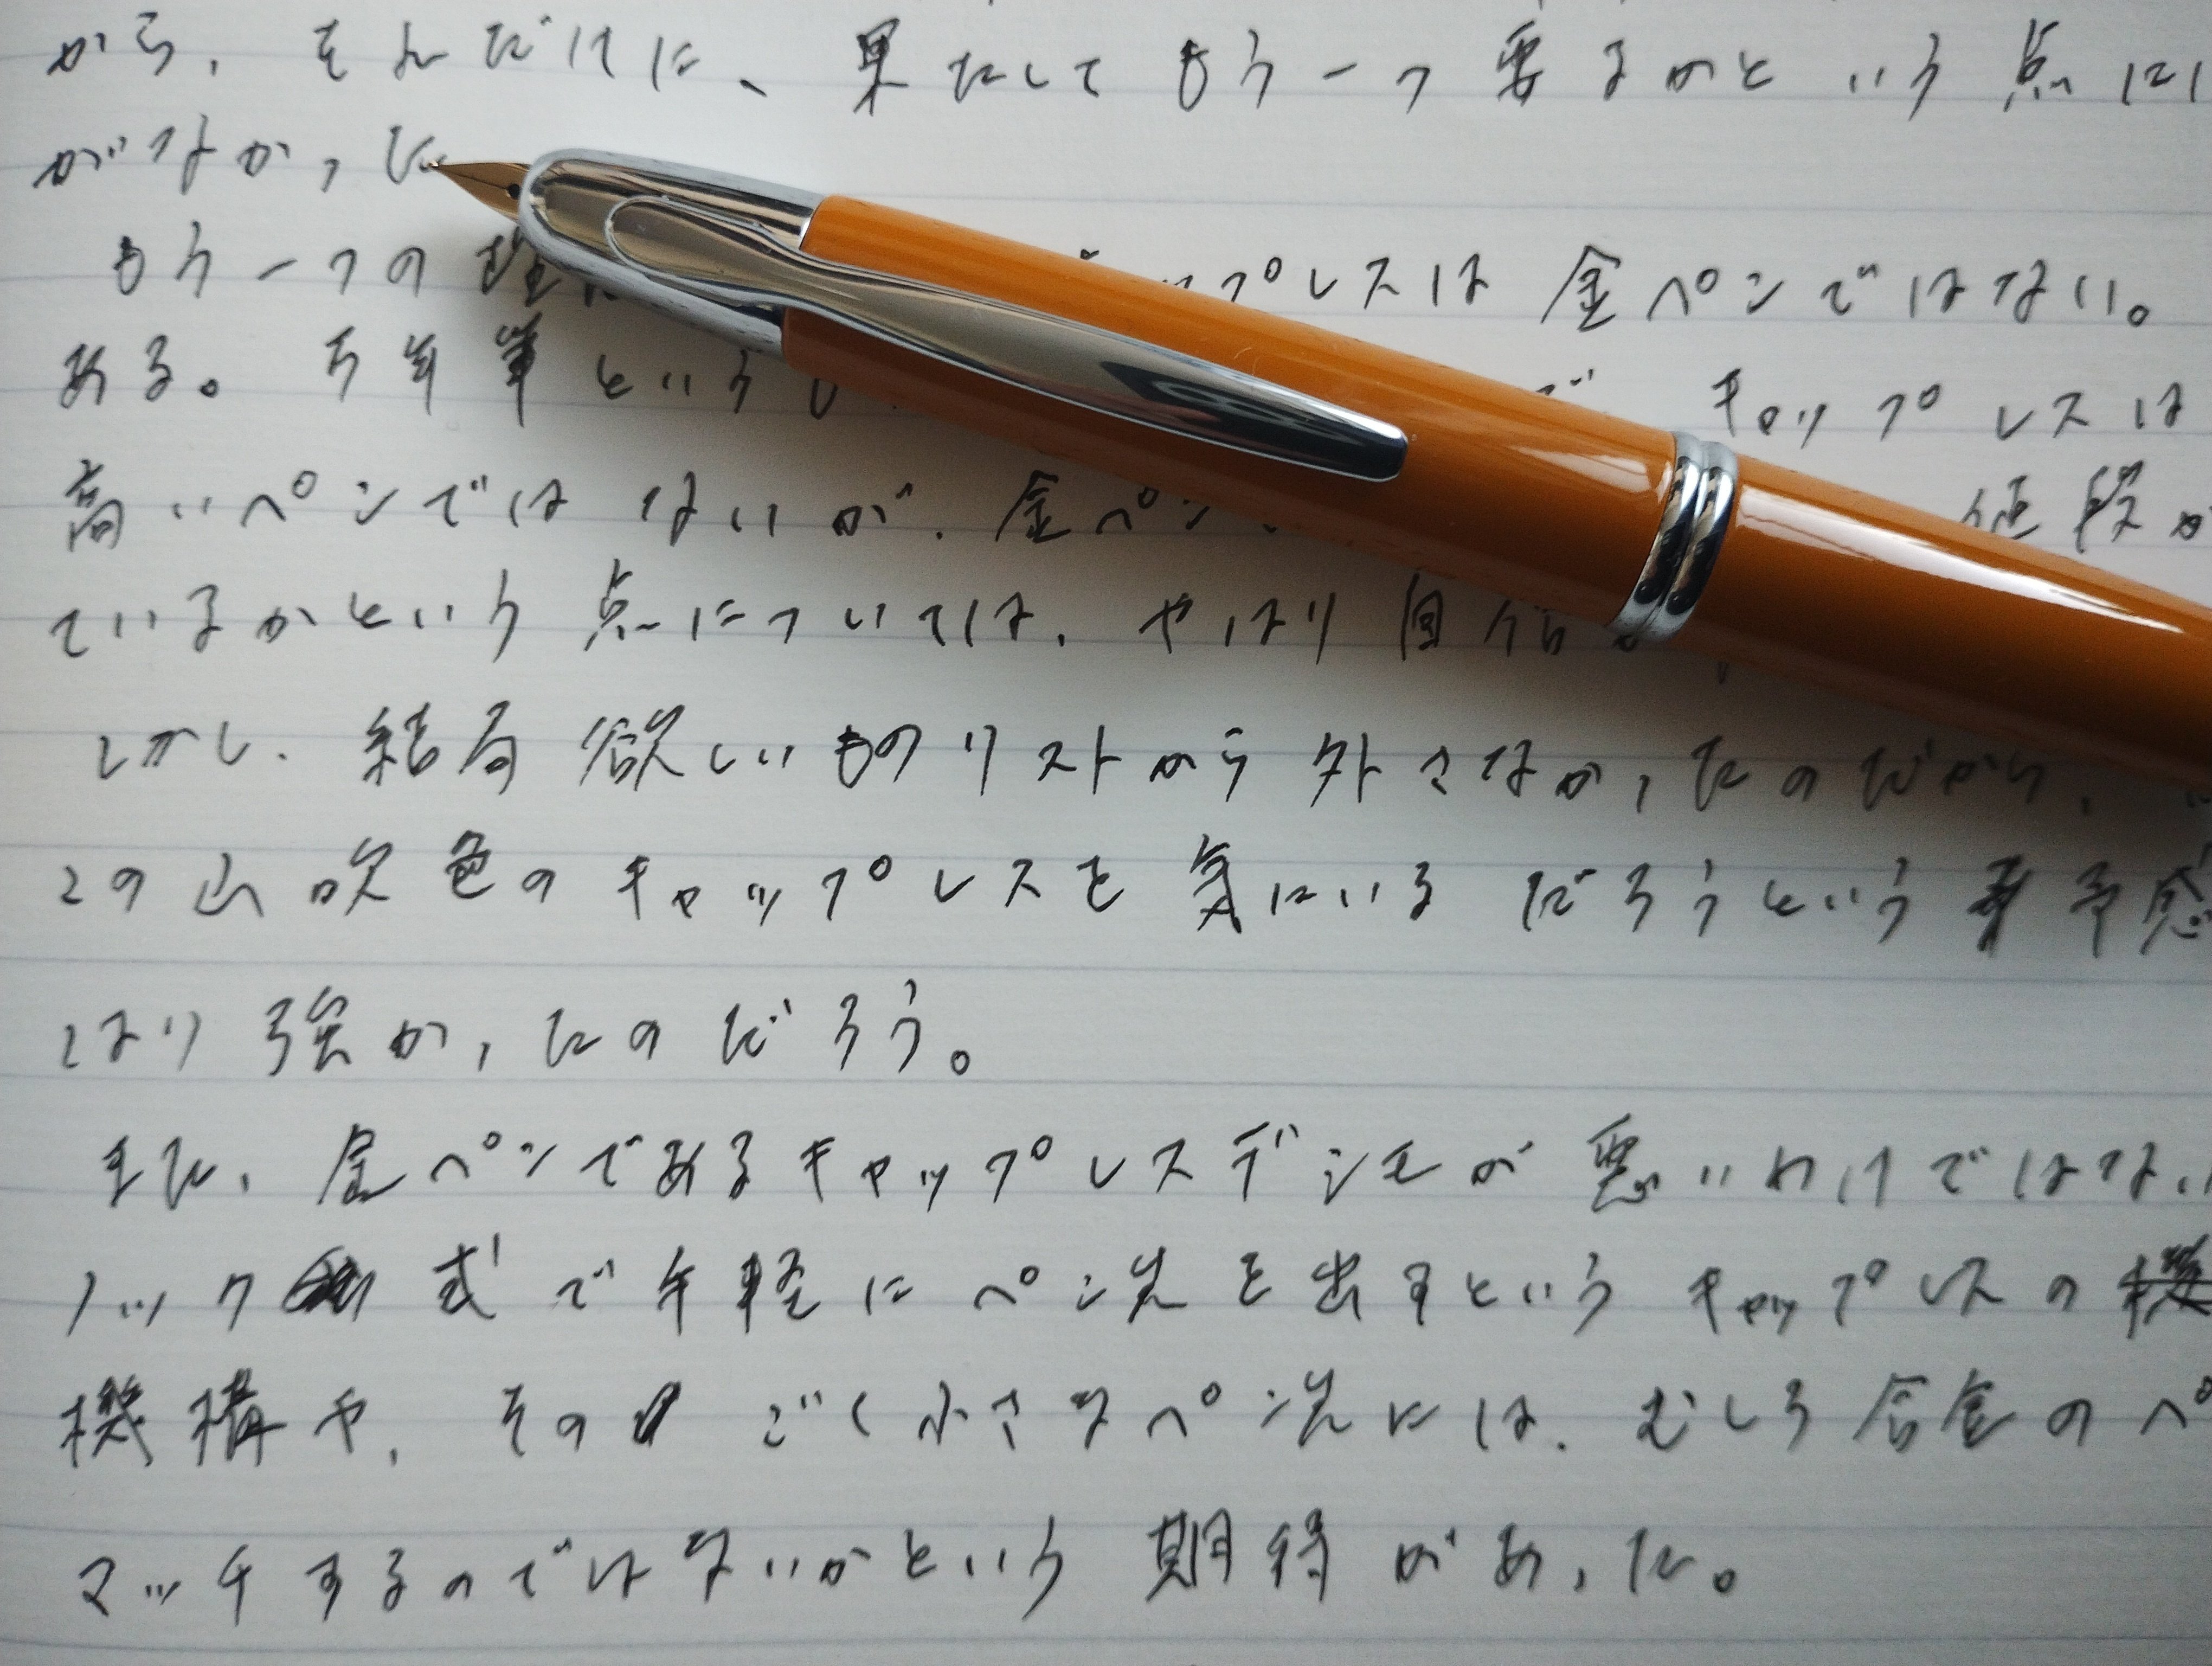 から、それだけに、果たしてもう一つ要るかという点に
がなかった
もう一つの理 ップレスは金ペンではない。
ある。万年筆という キャップレスは
高いペンではないが、金ペン 値段が
ているかという点については、やはり自信
しかし、結局欲しいものリストから外さなかったのだから、
この山吹色のキャップレスを気にいるだろうという予感
はり強かったのだろう。
また、金ペンであるキャップレスデシモが悪いわけではない
ノック式で手軽にペン先を出すというキャップレスの
機構や、そのごく小さなペン先には、むしろ合金のペ
マッチするのではないかという期待があった。